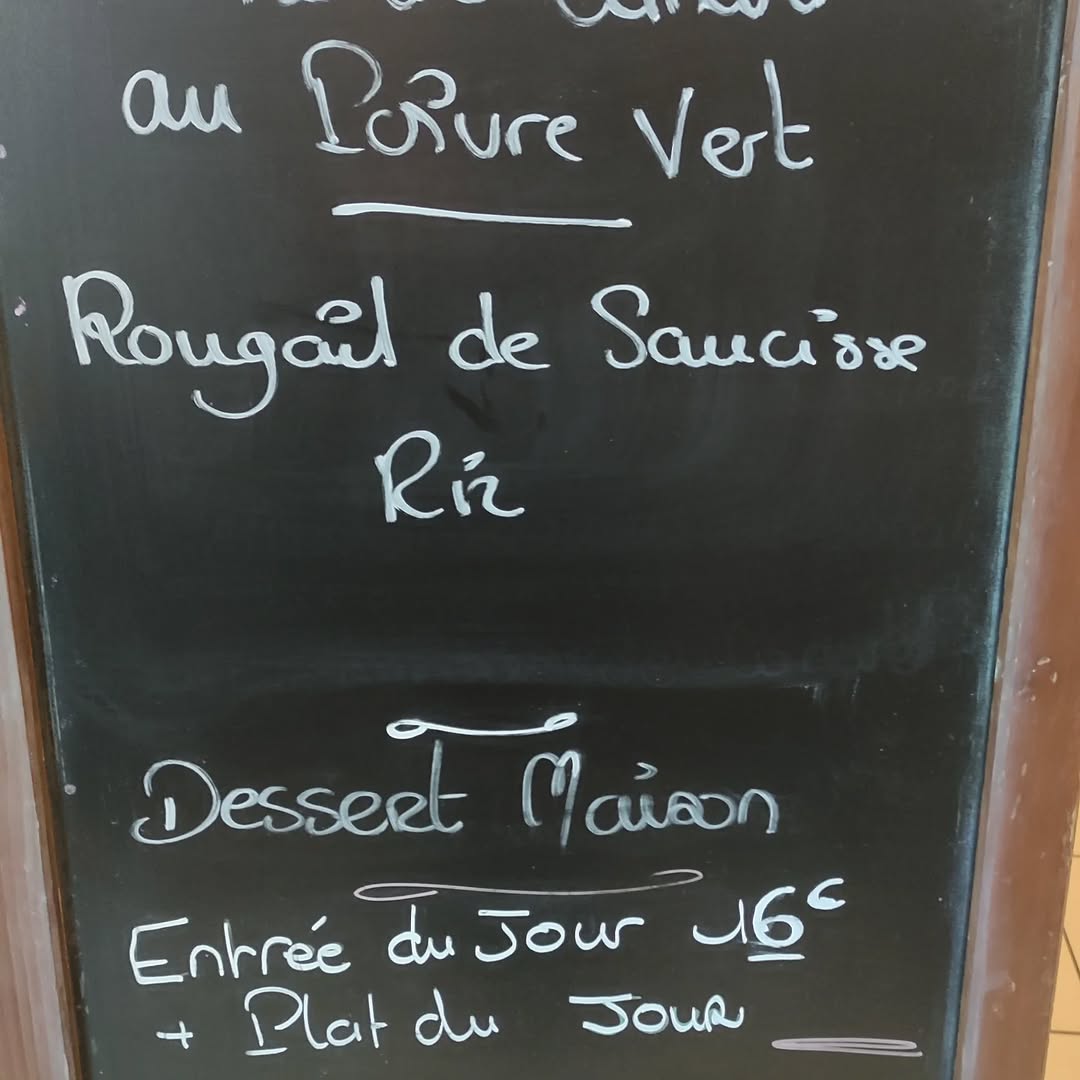 au Poivre Vert
Rougail de Saucisse
Riz
Dessert Maison
Entrée du Jour 16€
+ Plat du Jour